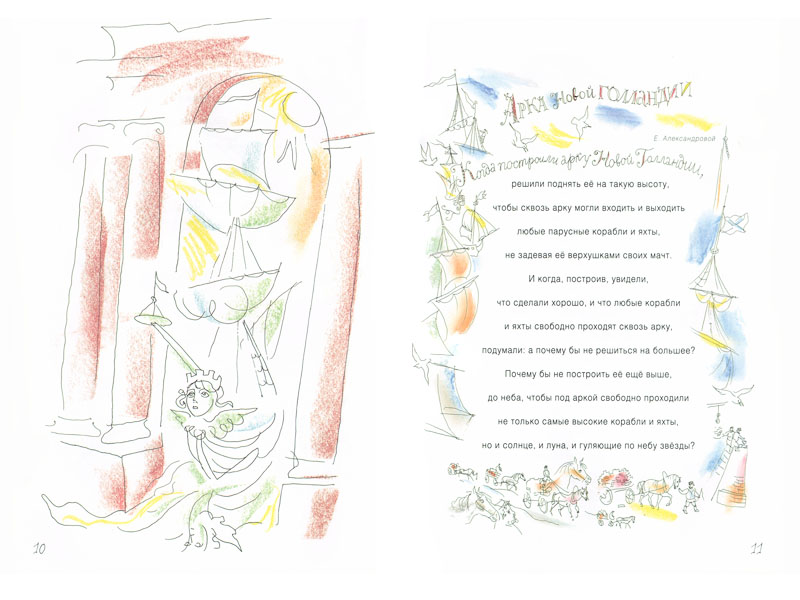 10
Арка Новой Голландии
Е. Александровой
Когда построили арку Новой Голландии,
решили поднять её на такую высоту,
чтобы сквозь арку могли входить и выходить
любые парусные корабли и яхты,
не задевая её верхушками своих мачт.
И когда, построив, увидели,
что сделали хорошо, и что любые корабли
и яхты свободно проходят сквозь арку,
подумали: а почему бы не решиться на большее?
Почему бы не построить её ещё выше,
до неба, чтобы под аркой свободно проходили
не только самые высокие корабли и яхты,
но и солнце, и луна, и гуляющие по небу звёзды?
11